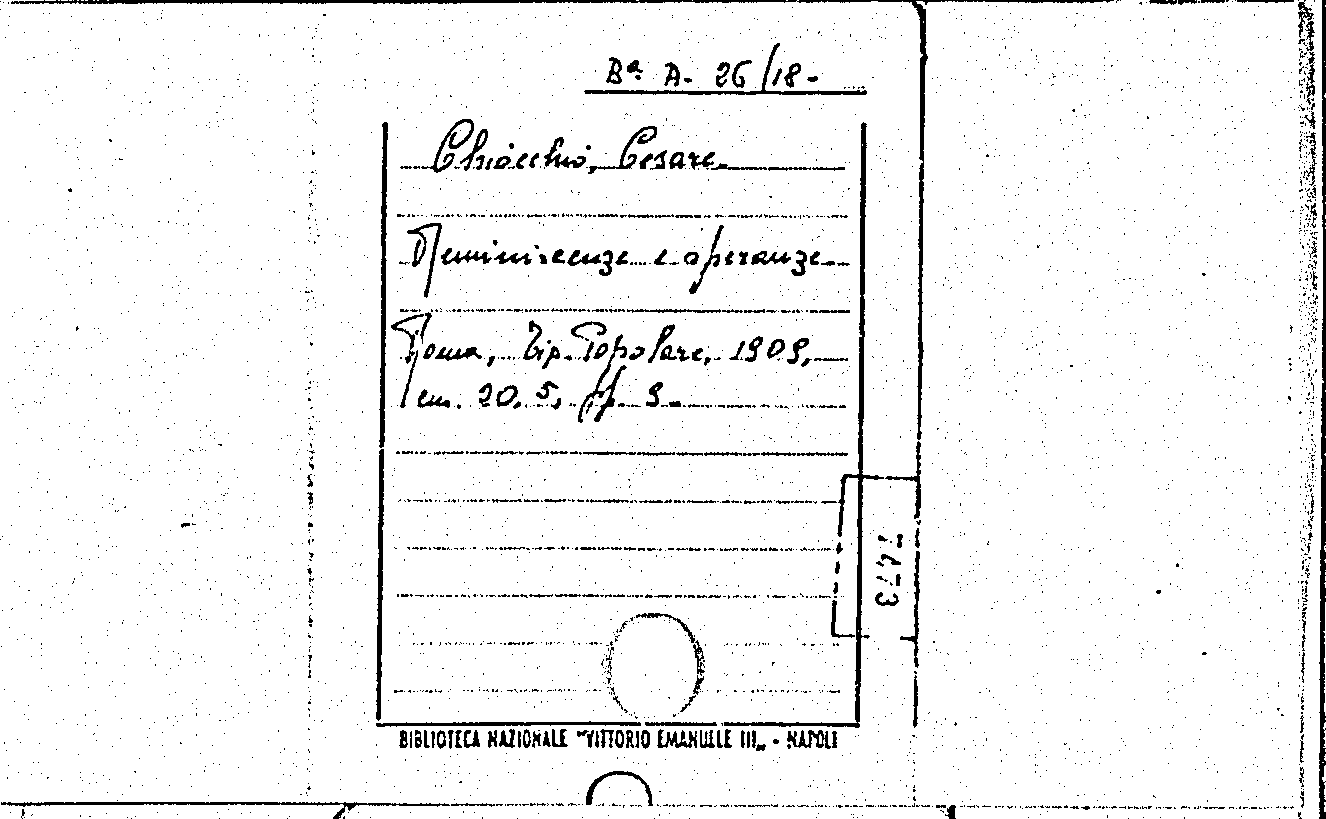 Bª A. 26/18-
Chiocchio, Cesare.
Reminiscenze e speranze
Roma, Tip. Popolare, 1909,
cm. 20,5, pp. 9.
7473
BIBLIOTECA NAZIONALE "VITTORIO EMANUELE III„ - NAPOLI